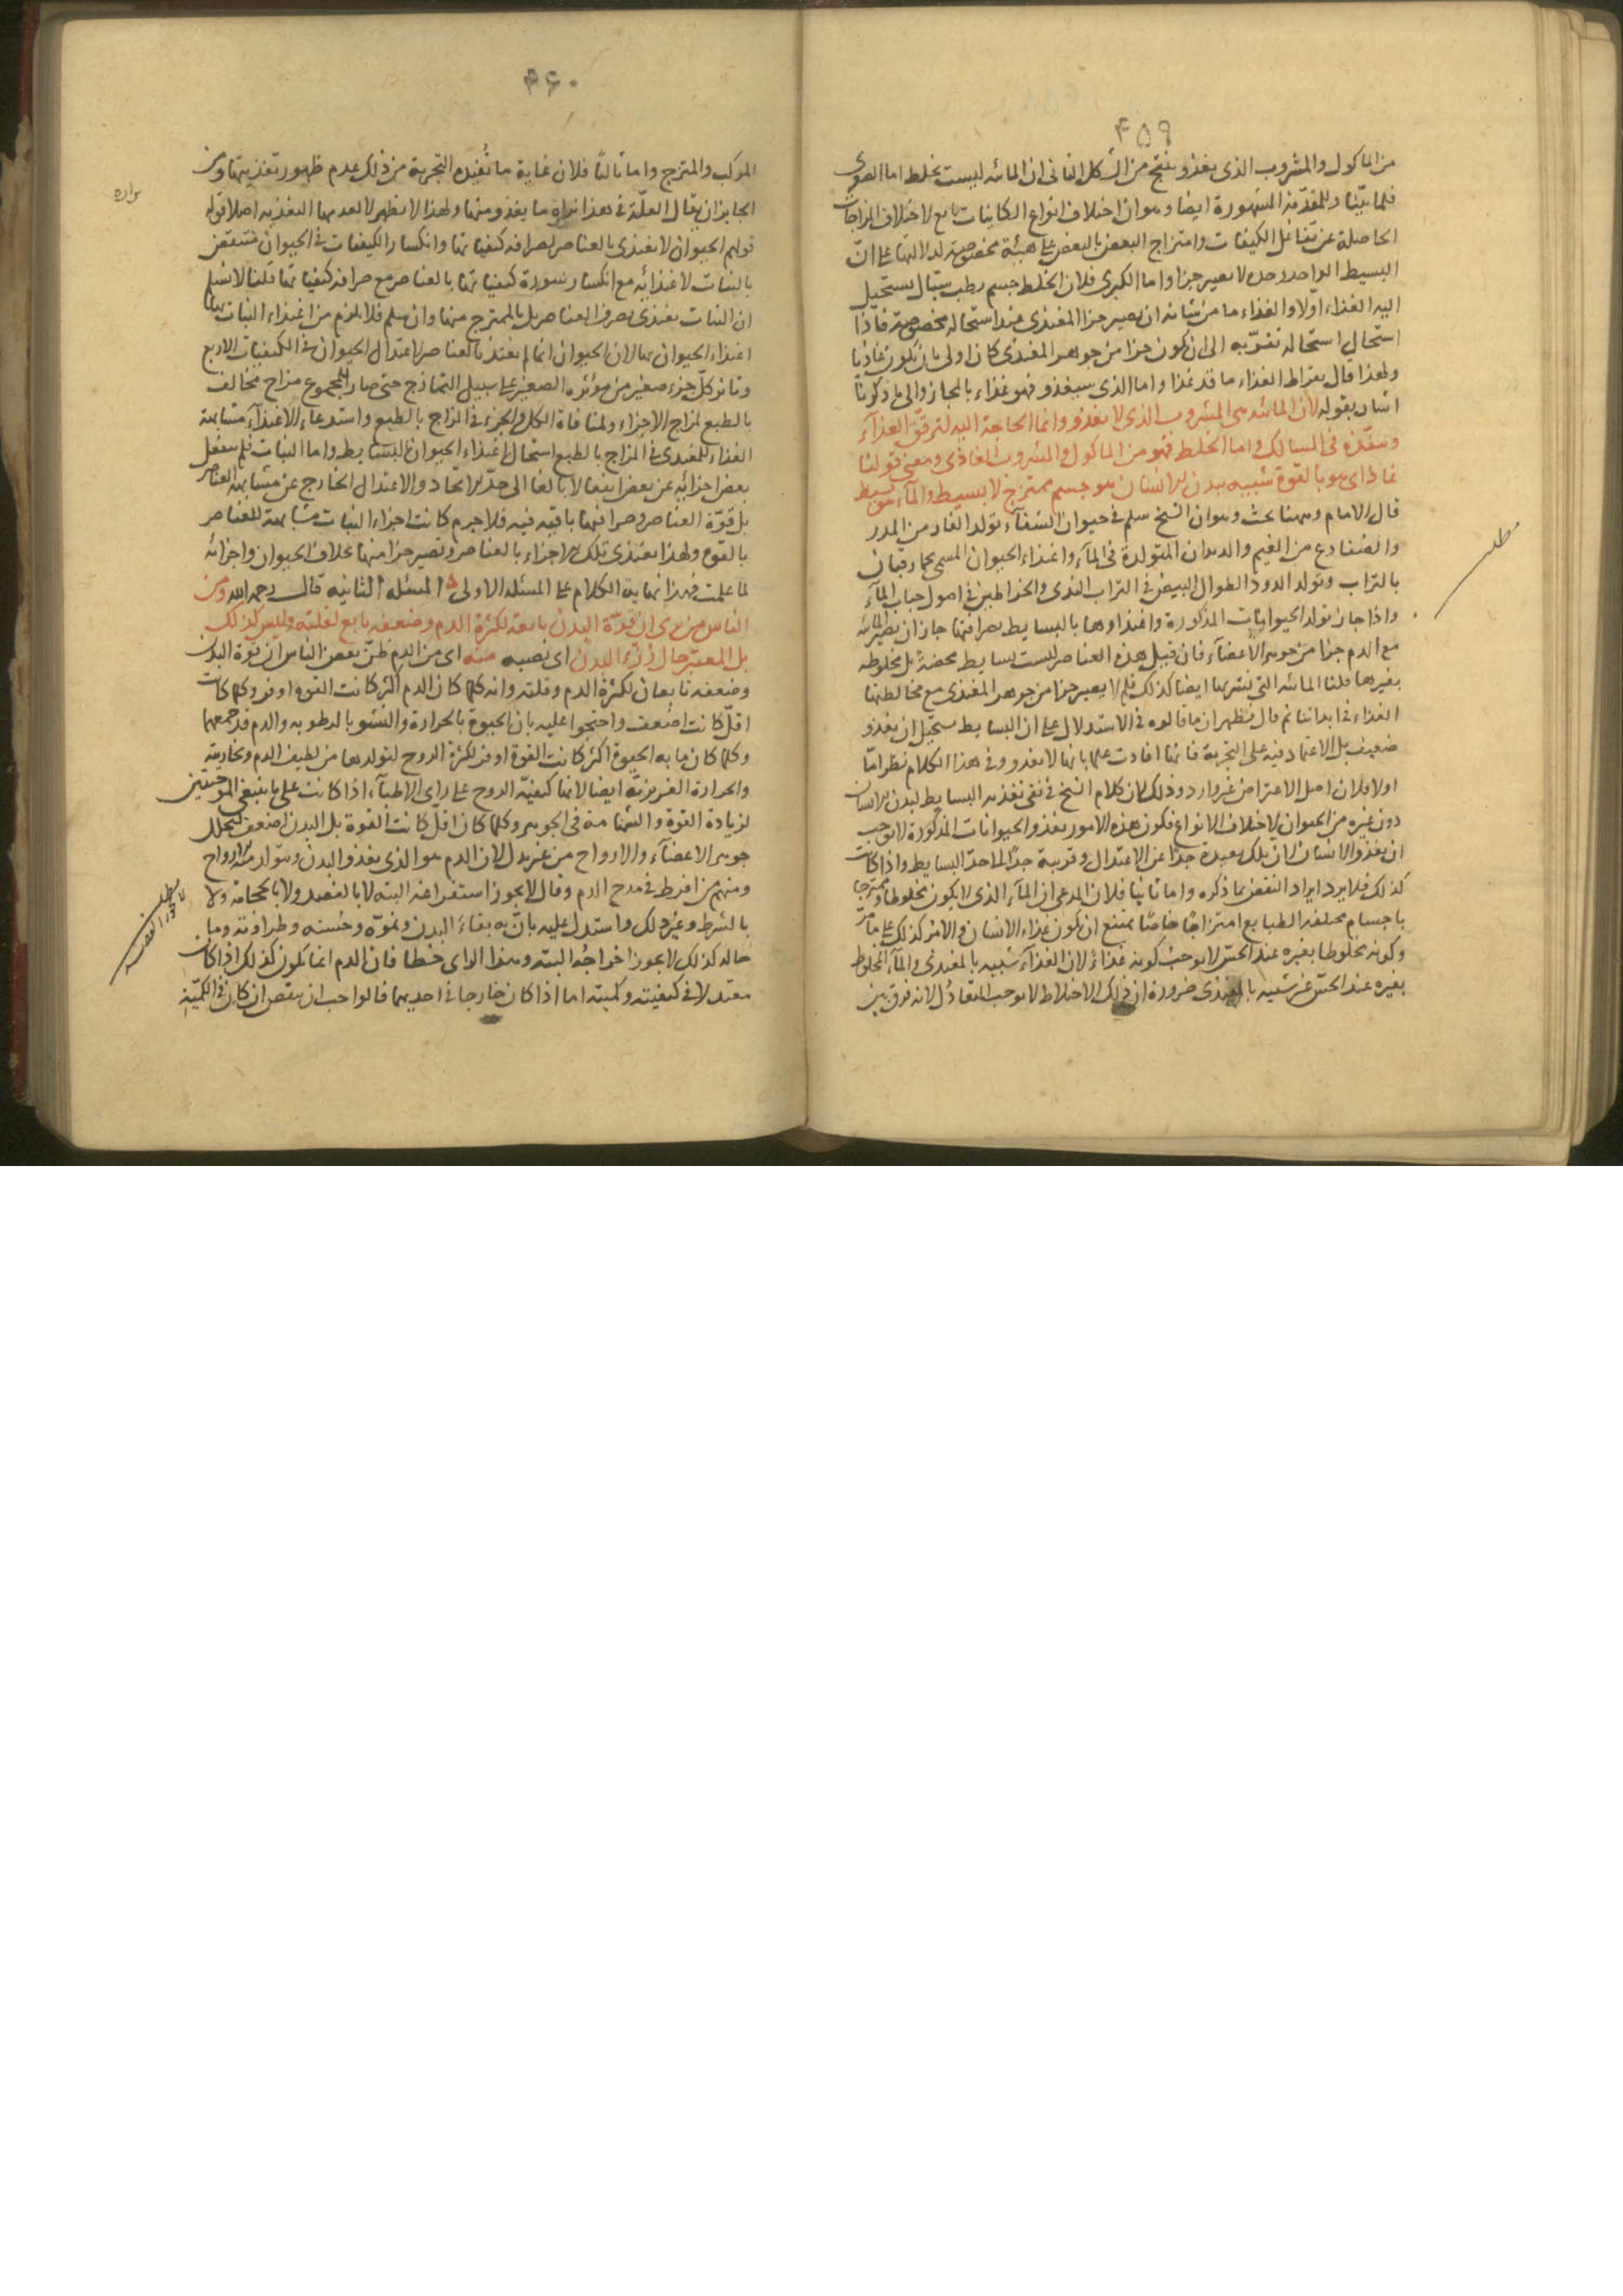 ۴۵۹
من الماكول والمشروب الذى يغذو ينتج من الشكل الثانى ان المائيه ليست بخلط اما الصغرى
فلما بيّنا وللمقدمة المشهورة ايضا وهو ان اختلاف انواع الكاينات تابع لاختلاف المزاجات
الحاصلة عن تفاعل الكيفيات وامتزاج البعض بالبعض على هيئة مخصوصة لدلالتها على انّ
البسيط الواحد وحده لا يصير جزا واما الكبرى فلان الخلط جسم رطب سيّال يستحيل
اليه الغذاء اوّلا والغذاء ما من شانه ان يصير جزا المغتذى عند استحالة مخصوصة فاذا
استحال استحالة تقرّبه الى ان يكون جزا من جوهر المغتذى كان اولى بان يكون غاذيا
ولهذا قال بقراط الغذاء ما قد غذا واما الذى سيغذو فهو غذاء بالمجاز والى ما ذكرنا
اشار بقوله لان المائيه هى المشروب الذى لا يغذو وانما الحاجة اليه لترقيق الغذآء
وتنفيذه فى المسالك واما الخلط فهو من الماكول والمشروب الغاذى ومعنى قولنا
غاذ اى هو بالقوة شبيه ببدن الانسان هو جسم ممتزج لا بسيط والمآء هو بسيط
قال الامام وههنا بحث وهو ان الشيخ سلم فى حيوان الشفآء تولد الفار من المدر
والضفادع من الغيم والديدان المتولدة فى المآء واغذاء الحيوان المسمى بحمار قبان
بالتراب وتولد الدود الطوال البيض فى التراب الندى والخراطين فى اصول حباب المآء
واذا جاز تولد الحيوانات المذكورة واغتذاوها بالبسايط بصرافتها جاز ان يصير المائيه
مع الدم جزا من جوهر الاعضآء فان قيل هذه العناصر ليست بسايط محضة بل مخلوطه
بغيرها قلنا المائيه التى نشربها ايضا كذلك فلم لا يصير جزا من جوهر المغتذى مع مخالطتها
الغذاء فى ابداننا ثم قال فظهر ان ما قالوه فى الاستدلال على ان البسايط يستحيل ان يغذو
ضعيف بل الاعتماد فيه على التجربة فانها افادت علما بانها لا يغذو وفى هذا الكلام نظر امّا
اولا فلان اصل الاعتراض غير وارد وذلك لان كلام الشيخ فى نفى تغذيه البسايط لبدن الانسان
دون غيره من الحيوان لاختلاف الانواع فكون هذه الامور يغذو الحيوانات المذكورة لا يوجب
ان يغذو الانسان لان تلك بعيدة جدّا عن الاعتدال وقريبة جدّا الى حدّ البسايط واذا كانت
كذلك فلا يرد ايراد النقض بما ذكره واما ثانيا فلان المدعى ان المآء الذى لا يكون مخلوطا وممتزجا
باجسام مختلفه الطبايع امتزاجًا خاصّا يمتنع ان يكون غذاء الانسان والامر كذلك على ما مرّ
وكونه مخلوطا بغيره عند الحسّ لا يوجب كونه غذاءً لان الغذآء شبيه بالمغتذى والمآء المخلوط
بغيره عند الحسّ غير شبيه بالمغتذى ضرورة ان ذلك الاختلاط لا يوجب التعادل لانه فرق بين
۴۶۰
المركب والممتزج واما ثالثا فلان غاية ما تُفيده التجربة من ذلك عدم ظهور تغذيتها ومن
الجايز ان يقال العلّة فى هذا نزارة ما يغذو منها ولهذا لا يظهر لا لعدمها التغذيه اصلا قوله
قولهم الحيوان لا يغتذى بالعناصر لصرافة كيفياتها وانكسار الكيفيات فى الحيوان منتقض
بالنبات لاغتذائه مع انكسار سورة كيفياتها بالعناصر مع صرافة كيفياتها قلنا لا نسلم
ان النبات يغتذى بصرف العناصر بل بالممتزج منها وان سلم فلا يلزم من اغتذاء النبات بها
اغتذاء الحيوان بها لان الحيوان انما لم يغتذ بالعناصر لاعتدال الحيوان فى الكيفيات الاربع
وتاثر كلّ جزء صغير من مؤثره الصغير على سبيل التمازج حتى صار للمجموع مزاج مخالف
بالطبع لمزاج الاجزاء ولمنافاة الكل والجزء فى المزاج بالطبع واستدعاء الاغتذآء مشابهة
الغذاء للمغتذى فى المزاج بالطبع استحال اغتذاء الحيوان بالبسايط واما النبات فلم ينفعل
بعض اجزائه عن بعض انفعالا بالغا الى حدّ الاتحاد والاعتدال الخارج عن مشابهه العناصر
بل قوّة العناصر وصرافتها باقيه فيه فلا جرم كانت اجزاء النبات مشابهة للعناصر
بالقوة ولهذا يغتذى تلك الاجزاء بالعناصر وتصير جزا منها بخلاف الحيوان واجزائه
لما علمت فهذا نهاية الكلام على المسئله الاولى المسئله الثانيه قال رحمه الله ومن
الناس من يرى ان قوّة البدن تابعة لكثرة الدم وضعفه تابع لقلته وليس كذلك
بل المعتبر حال رزء البدن اى نصيبه منه اى من الدم ظنّ بعض الناس ان قوة البدن
وضعفه تابعان لكثرة الدم وقلته وانه كلما كان الدم اكثر كانت القوه اوفر وكلما كانت
اقلّ كانت اضعف واحتجوا عليه بان الحيوة بالحرارة والنشو بالرطوبه والدم قد جمعهما
وكلما كان ما به الحيوة اكثر كانت القوة اوفر لكثرة الروح لتولدها من لطيف الدم وبخاريته
والحرارة الغريزيّة ايضا لانها كيفيّة الروح على راى الاطبآء اذا كانت على ما ينبغى الموجبتين
لزيادة القوة والشهامة فى الجوهر وكلما كان اقلّ كانت القوة بل البدن اضعف لتحلل
جوهر الاعضآء والارواح من غير بدل لان الدم هو الذى يغذو البدن ويتولد منه الارواح
ومنهم من افرط فى مدح الدم وقال لا يجوز استفراغه البته لا بالفصد ولا بالحجامة ولا
بالشرط وغير ذلك واستدل عليه بانّ به بقاءَ البدن ونموّه وحُسنه وطراوته وما
حاله كذلك لا يجوز اخراجُه البته وهذا الراى خطا فان الدم انما يكون كذلك اذا كان
معتدلا فى كيفيته وكميته اما اذا كان خارجا فى احديهما فالواجب ان ينقص ان كان فى الكميّة